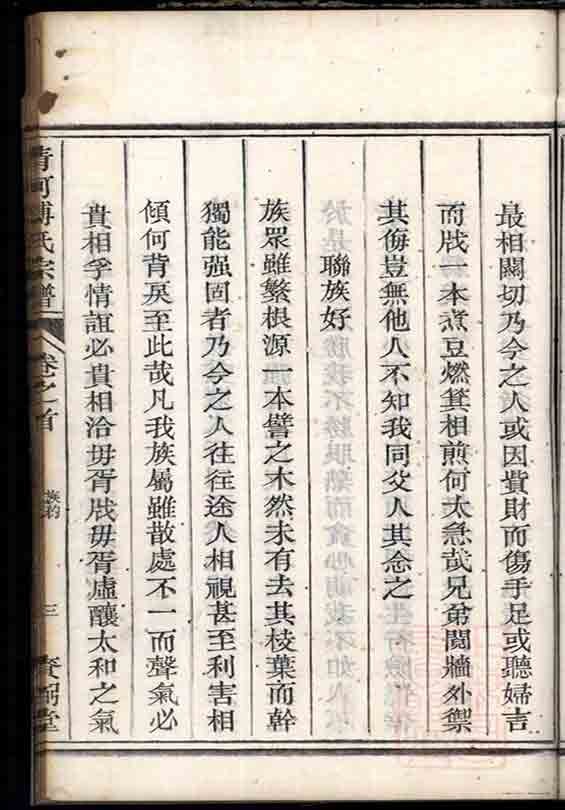 最相關切乃今之人或因貲財而傷手足或聽婦言
而戕一本煮豆燃箕相煎何太急哉兄弟鬩牆外禦
其侮豈無他人不知我同父人其念之
聯族好
族眾雖繁根源一本譬之木然未有去其枝葉而幹
獨能强固者乃今之人往往途人相視甚至利害相
傾何背戾至此哉凡我族屬雖散處不一而聲氣必
貴相孚情誼必貴相洽毋胥戕毋胥虐釀太和之氣
清河傅氏宗譜
卷之首
族約
三